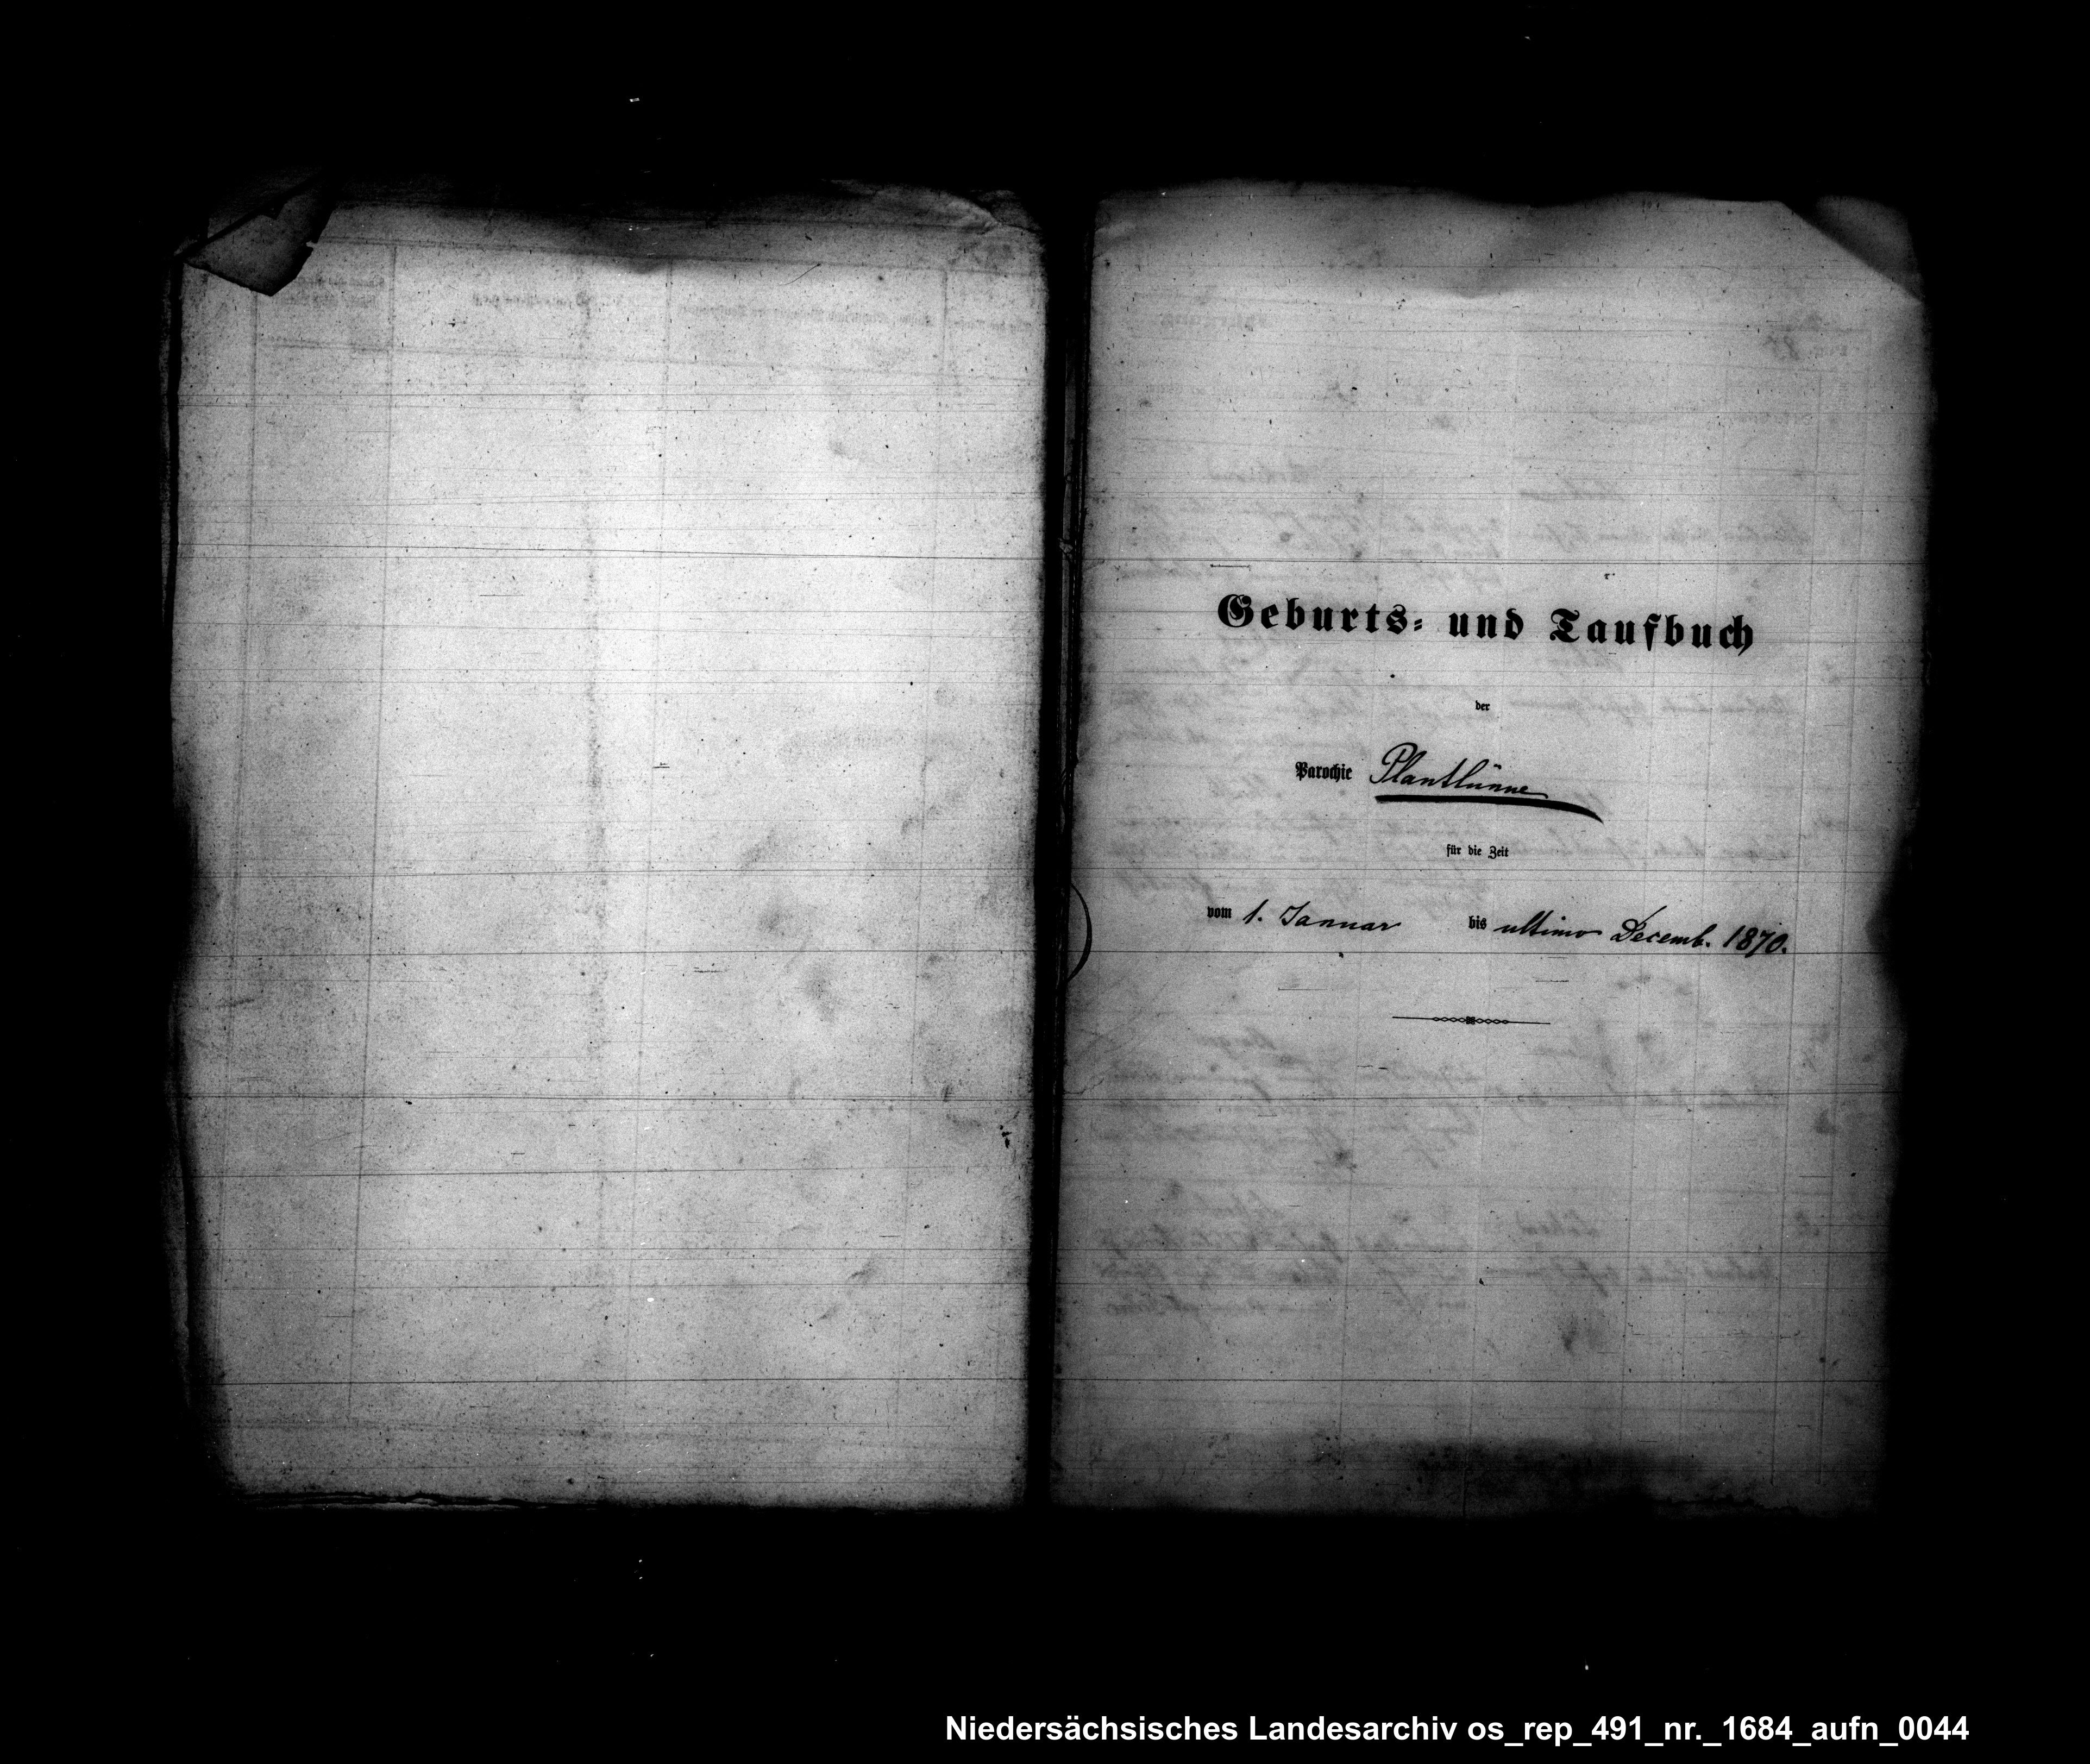 Geburts- und Taufbuch
der
Parochie Plantlünne
für die Zeit
vom 1. Januar bis ultimo Decemb. 1870.
Niedersächsisches Landesarchiv os_rep_491_nr._1684_aufn_0044